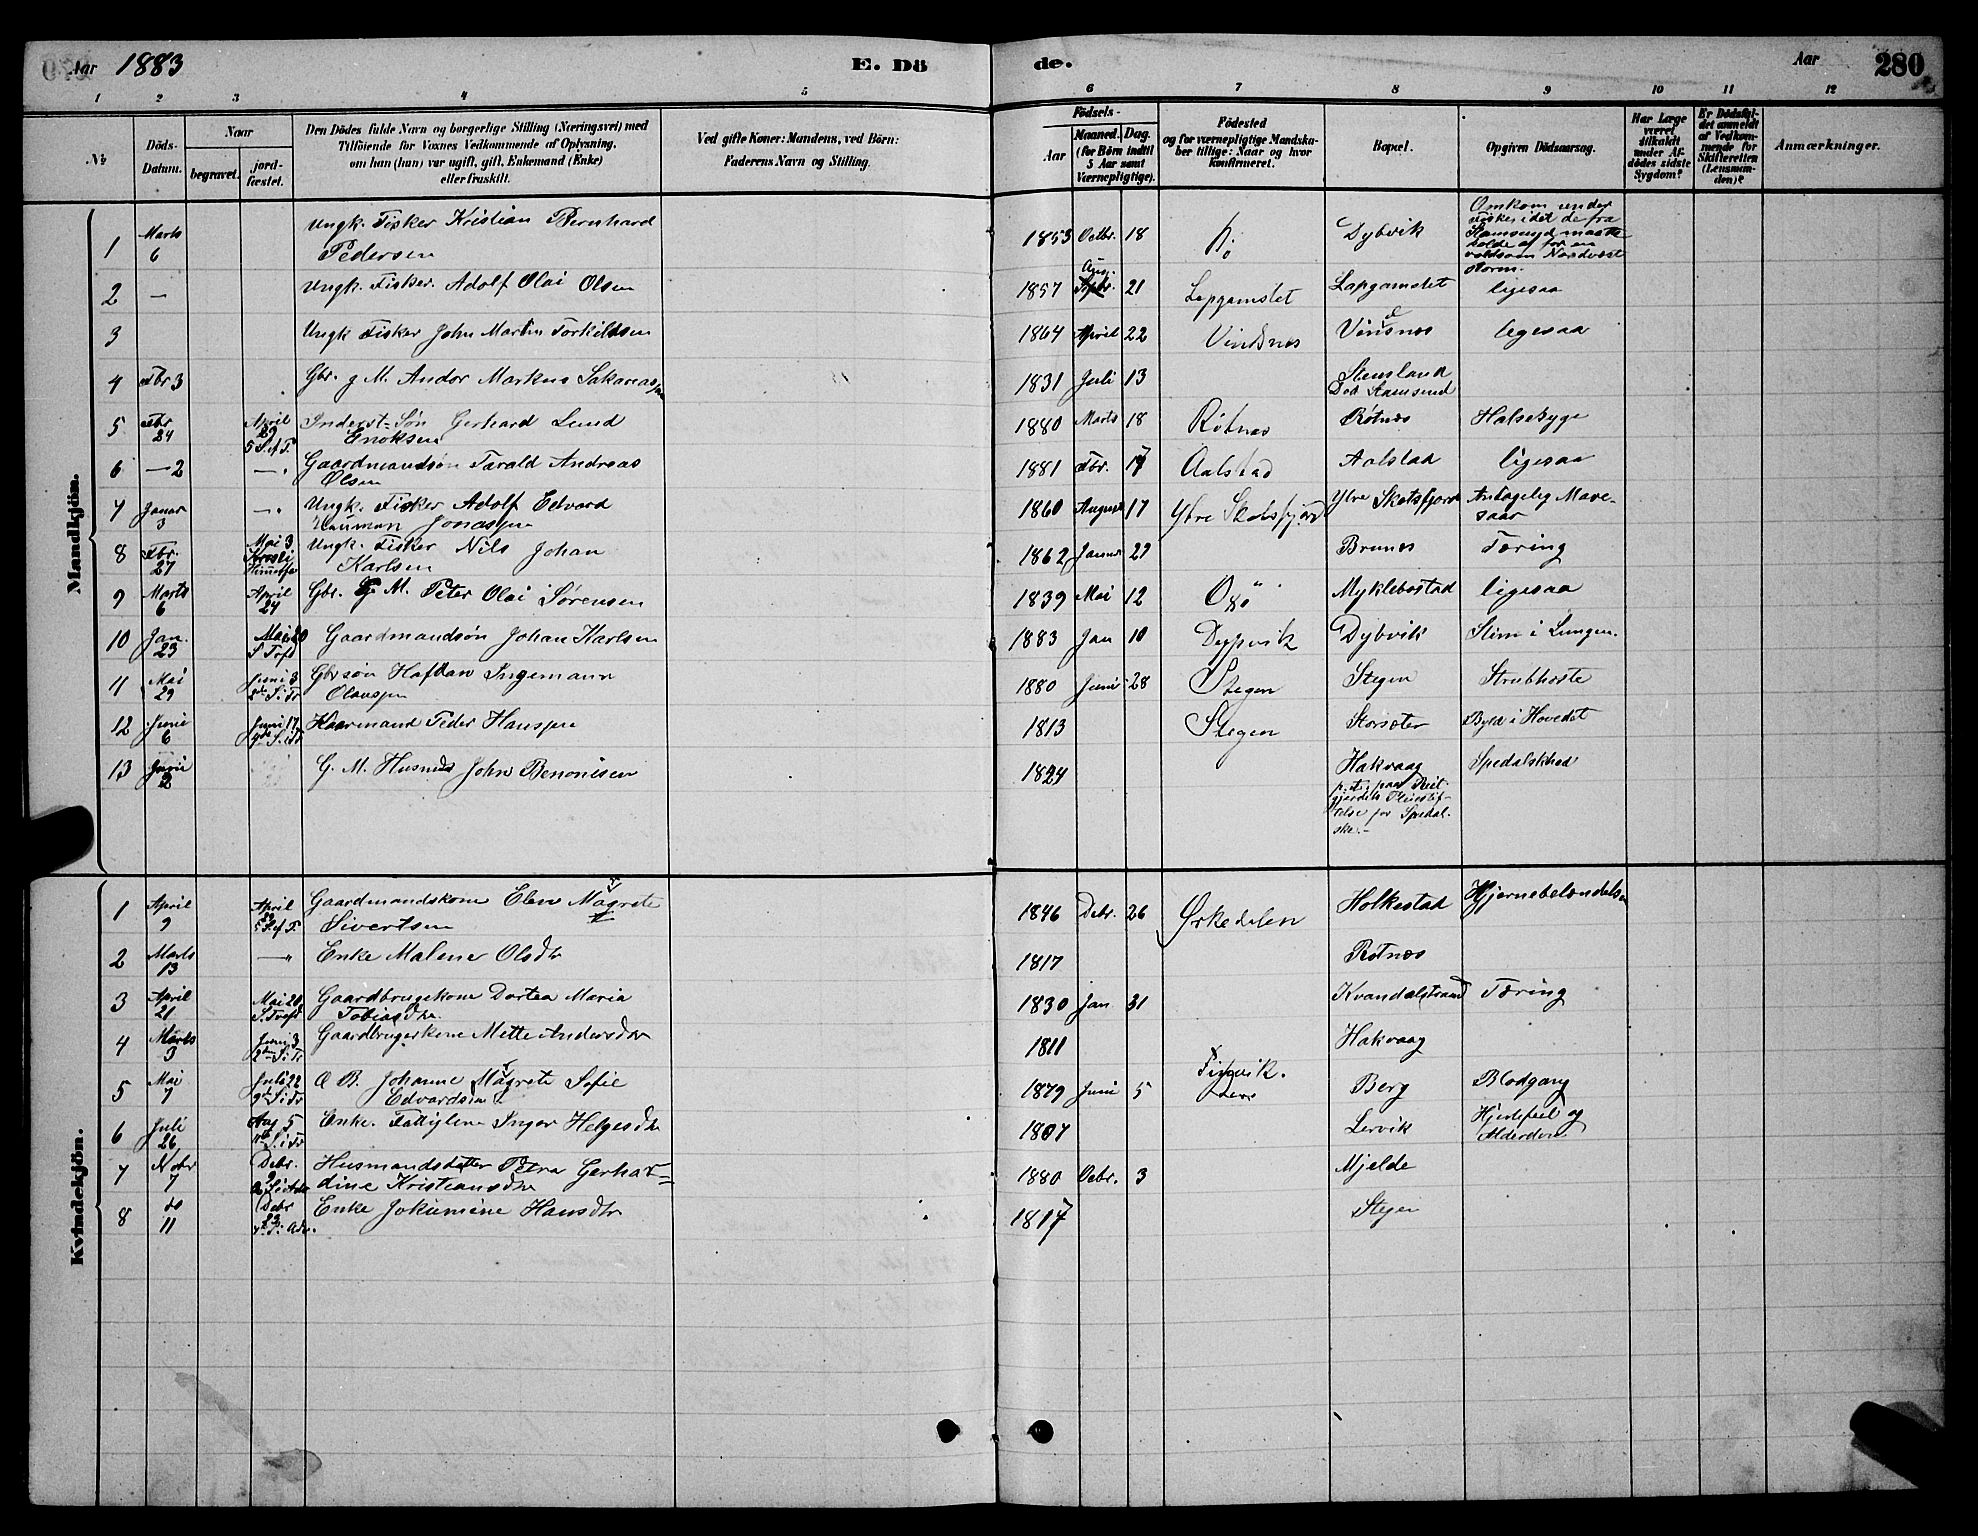 Aar 1883
E. Dö
de.
Aar
280
1 2 3 4 5 6 7 8 9 10 11 12
№
Döds-
Datum.
Naar
begravet.
jord-
fæstet.
Den Dödes fulde Navn og borgerlige Stilling (Næringsvei) med
Tilföiende for Voxnes Vedkommende af Oplysning,
om han (hun) var ugift, gift, Enkemand (Enke)
eller fraskilt.
Ved gifte Koner: Mandens, ved Börn:
Faderens Navn og Stilling.
Födsels-
Aar
Maaned.
Dag.
(for Börn indtil
5 Aar samt
Værnepligtige).
Födested
og for værnepligtige Mandska-
ber tillige: Naar og hvor
konfirmeret.
Bopæl.
Opgiven Dödsaarsag.
Har Læge
været
tilkaldt
under Af-
dödes sidste
Sygdom?
Er Dödsfal-
det anmeldt
af Vedkom-
mende for
Skifteretten
(Lensman-
den)?
Anmærkninger.
Mandkjön.
1 Marts 6 Ungk. Fisker Kristian Bernhard
Pedersen
1853 Octbr. 18 Dybvik
Omkom under
Fiske idet de fra
Stamsund maatte
holde af for en
voldsom Nordvest
storm.
2 — Ungk. Fisker. Adolf Olai Olsen 1857 Aug. 21 Lapgamstet Lapgamstet ligesaa
3 Ungk Fisker John Martin Torkildsen 1864 April 22 Vindsnes Vindsnes ligesaa
4 Fbr 3 Gbr. g M. Andor Markus 1831 Juli 13
Død Stamsund
5 Fbr 24 April 29
5 S. ef P.
Inderst-Søn Gerhard Lund
Enoksen
1880 Marts 18 Røtnes Røtnes Halsesyge
6 — 2 —"
Gaardmandsøn Tarald Andreas
Olsen
1881 Fbr. 17 Aalstad Aalstad ligesaa
7 Januar 3 —"
Ungk. Fisker Adolf Edvard
1860 August 17 Ytre Skotsfjord Ytre Skotsfjord Antagelig Mave-
saar
8 Fbr. 27 Mai 3
Ungk. Fisker Nils Johan
Karlsen
1862 Januar 29 Brunes Tæring
9 Marts 6 April 24 Gbr. G M. Peter Olai Sørensen 1839 Mai 12 Myklebostad ligesaa
10 Jan. 23 Mai 20 Gaardmandsøn Johan Karlsen 1883 Jan 10 Dypvik Dybvik Slim i Lungen.
11 Mai 29 Juni 3
Gbr søn Hafdan Ingemann
Olaussen
1880 Juni 28 Stegen Stegen Strubhoste
12 Juni 6 Juni 17 Kaarmand Peder Hanssen 1813 Stegen Storsæter Byld i Hovedet
13 Juni 2 G. M. Husmd John Benonisen 1824 Hakvaag Spedalskhed
p. t. paa Reit-
gjærdets Pleiestif-
telse for Spedal-
ske.-
Kvindekjön.
1 April 9 April 29
5 S. ef P.
Gaardmandskone Elen Magrete
Sivertsen
1846 Debr. 26 Ørkedalen Holkestad Hjernebetændelse
2 Marts 13 —" Enke Malene Olsdtr 1817 Røtnes
3 April 21 Mai 20
Gaardbrugekone Dortea Maria
Tobiasdtr
1830 Jan 31 Kvandalstrand Tæring
4 Marts 3 Juni 3 Gaardbrugerkone Mette Andersdtr 1811 Hakvaag
5 Mai 7 Juli 22
Johanne Magrete Sofie
Edvardsen
1879 Juni 5 Berg Blodgang
6 Juli 26 Aug 5 Enke. Fattiglem Inger Helgesdtr 1807 Lervik Hjertefeil og
Alderdom
7 Nobr 7 Debr. 9
Husmandsdatter Petra Gerhar-
dine Kristiansdtr
1880 Octbr. 3 Mjelde
8 do 11 Debr 23 Enke Jokumine Hansdtr 1817 Stegen